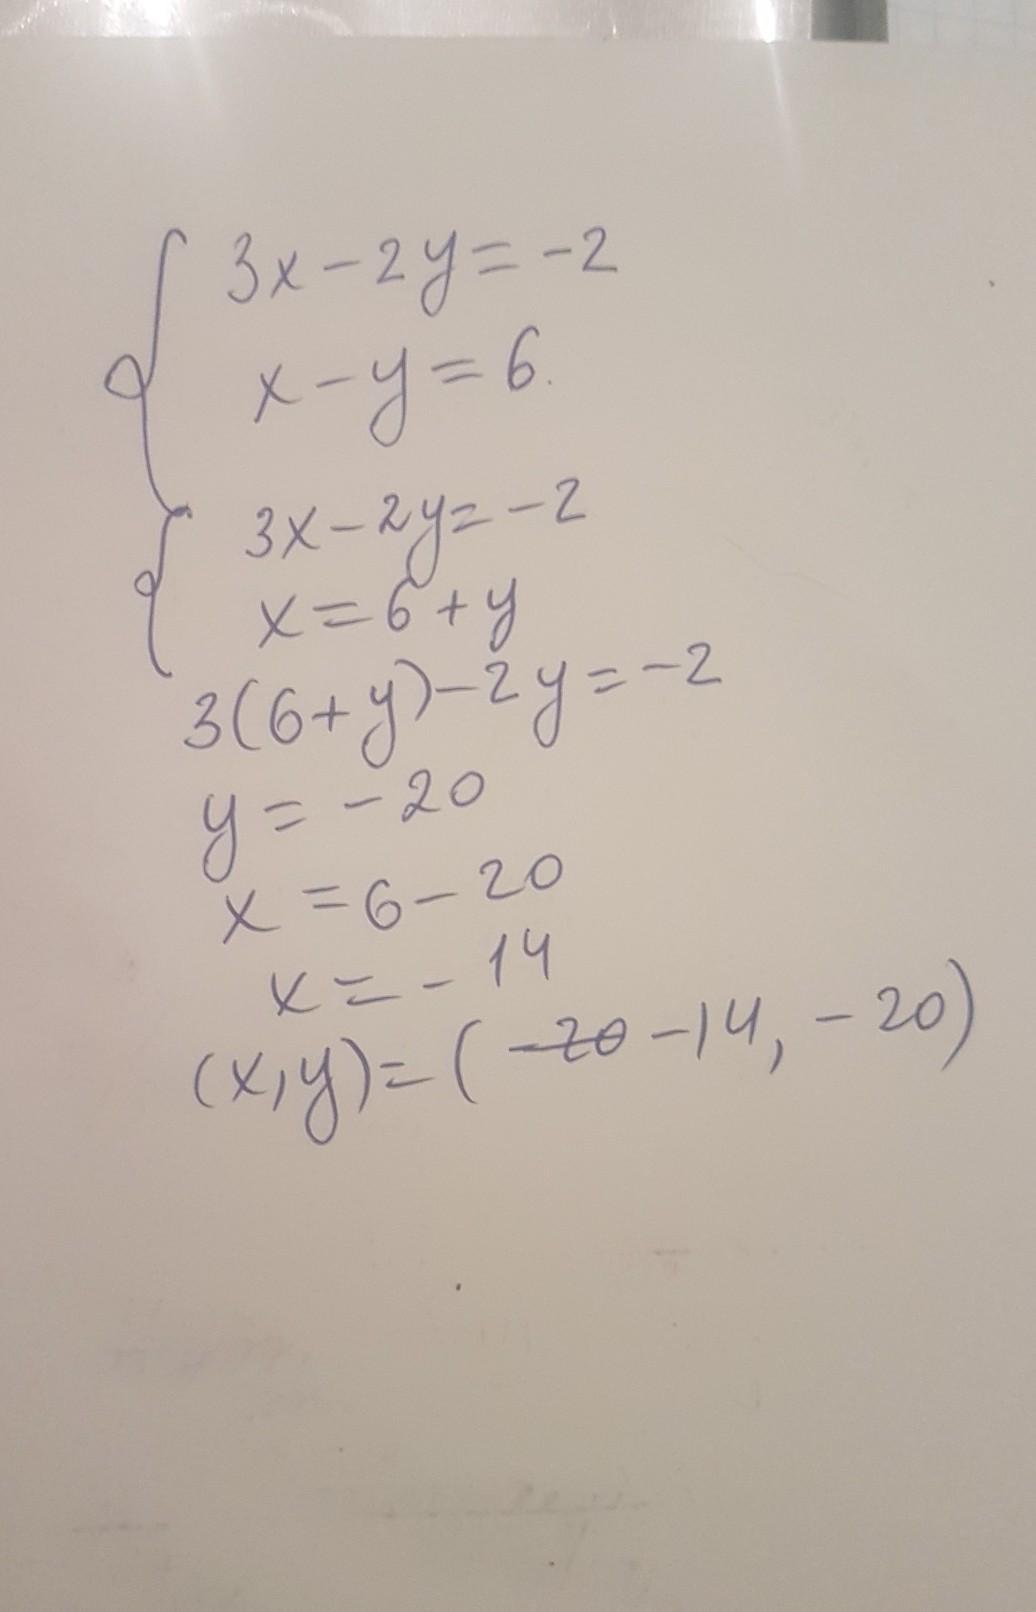 3x-2y=-2
x-y=6.
3x-2y=-2
x=6+y
3(6+y)-2y=-2
y=-20
x=6-20
x=-14
(x,y)=(-20 -14, -20)